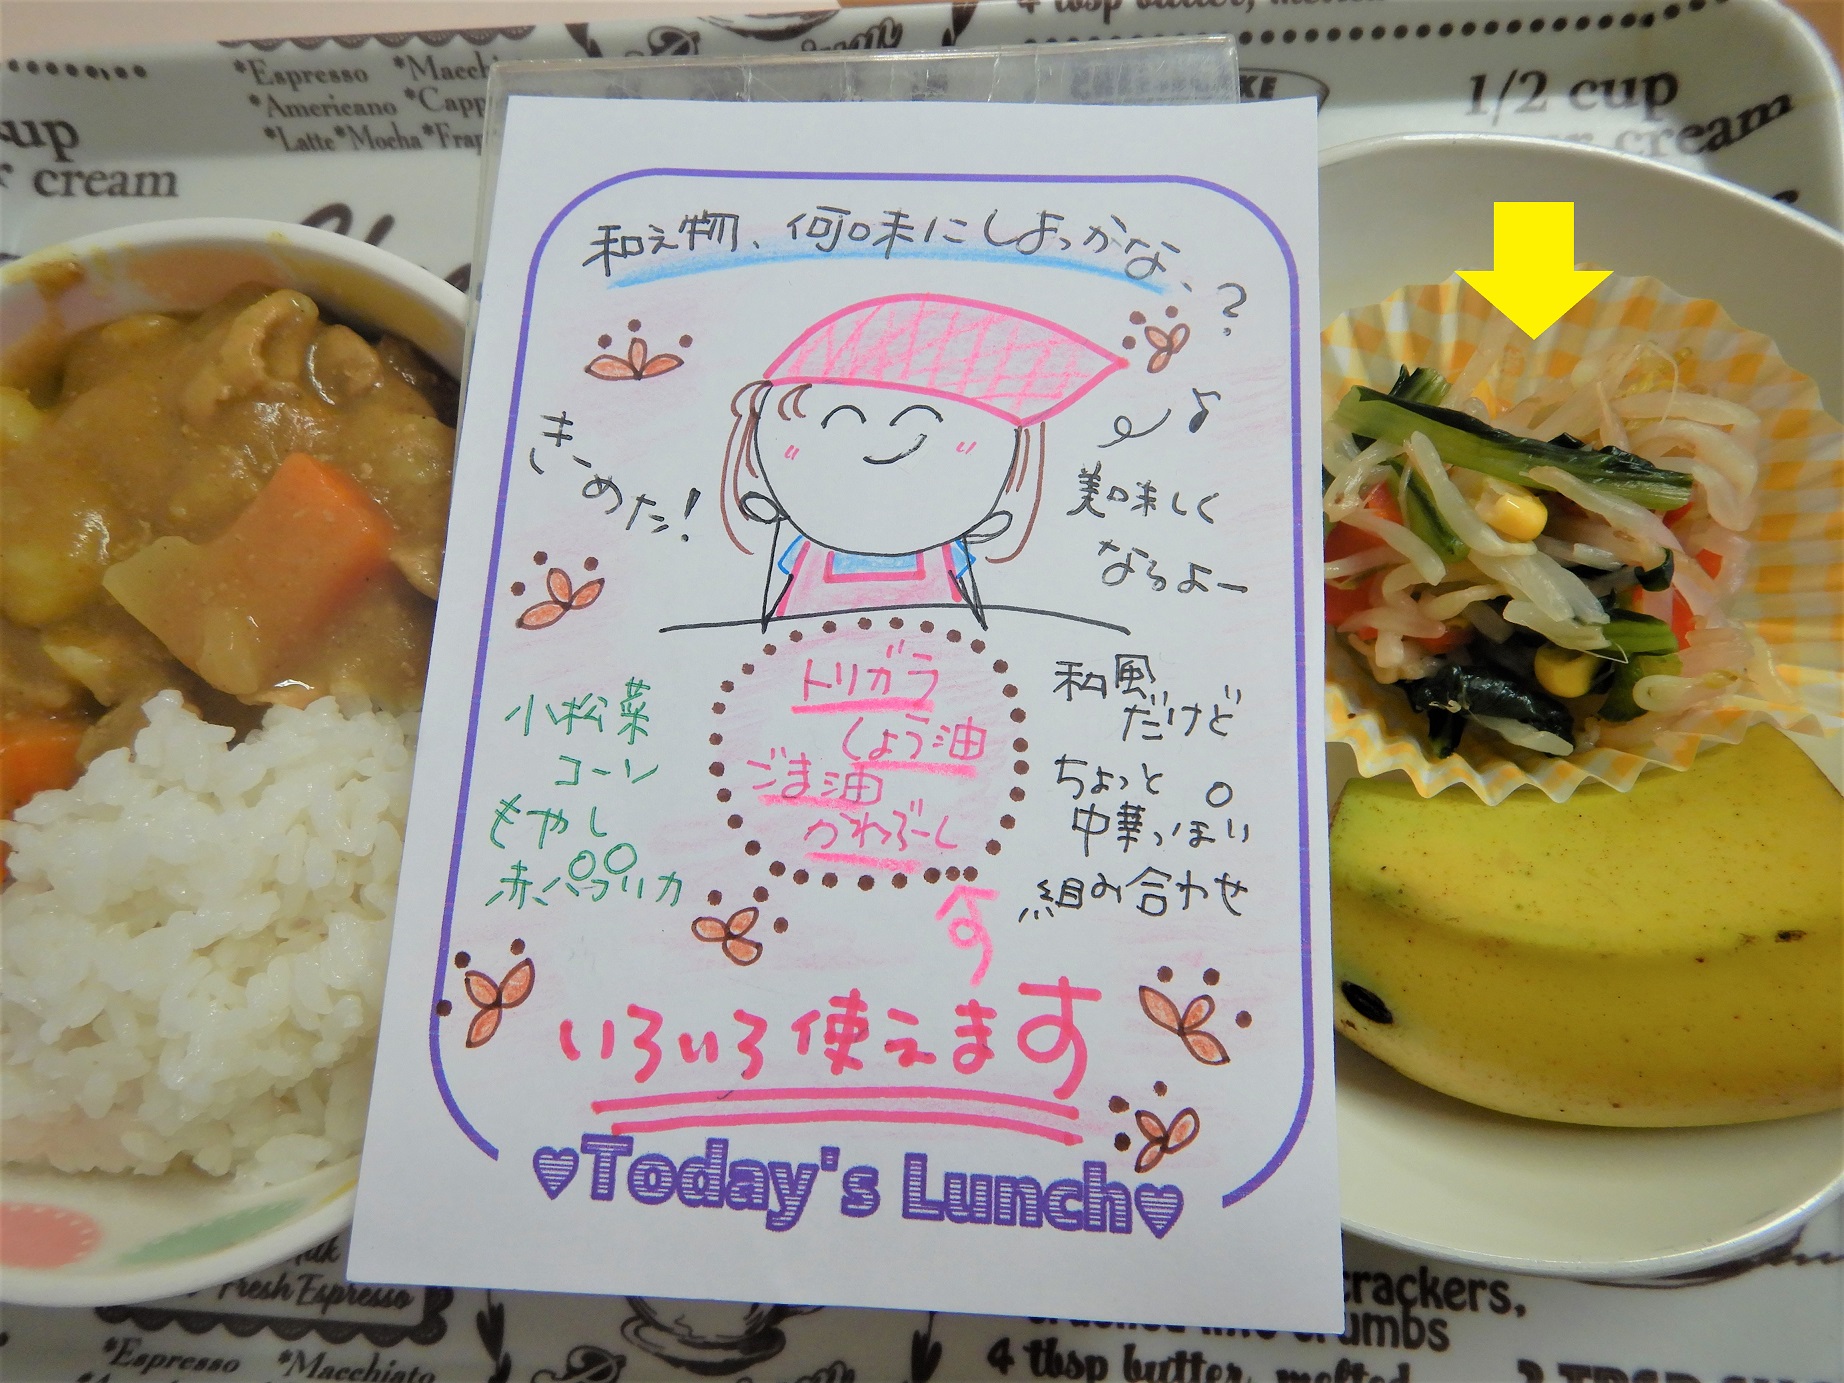 4 tbsp butter, melted
*Espresso *Macchi
*Americano *Capp
*Latte*Mocha*Frap
cup
cream
KE
1/2 cup
cream
和え物、何味にしよっかな、?
きーめた!
美味しく
なるよー
トリガラ
しょう油
ごま油
かつおぶーし
小松菜
コーン
もやし
赤パプリカ
和風だけど
ちょっと
中華っぽい
組み合わせ
いろいろ使えます
♥Today's Lunch♥
Fresh Espresso
*Espresso *Macchiato
crackers,
crumbs
4 tbsp butter, melted